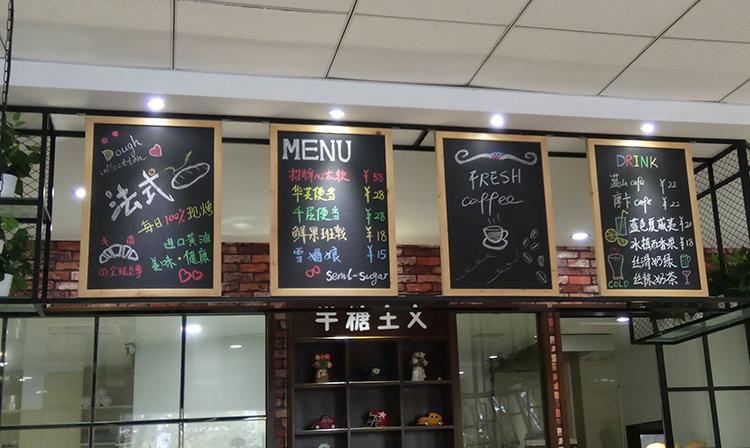 Dough
collection
法式
每日100%现烤
进口黄油
美味·健康
MENU
招牌心太软 ¥58
华芙便当 ¥28
千层便当 ¥28
鲜果班戟 ¥18
雪媚娘 ¥15
semi-sugar
FRESH
coffee
DRINK
蓝山cafe ¥22
摩卡cafe ¥22
蓝色夏威夷 ¥20
冰镇百香果 ¥18
丝滑奶绿
丝滑奶茶
COLD
半糖主义